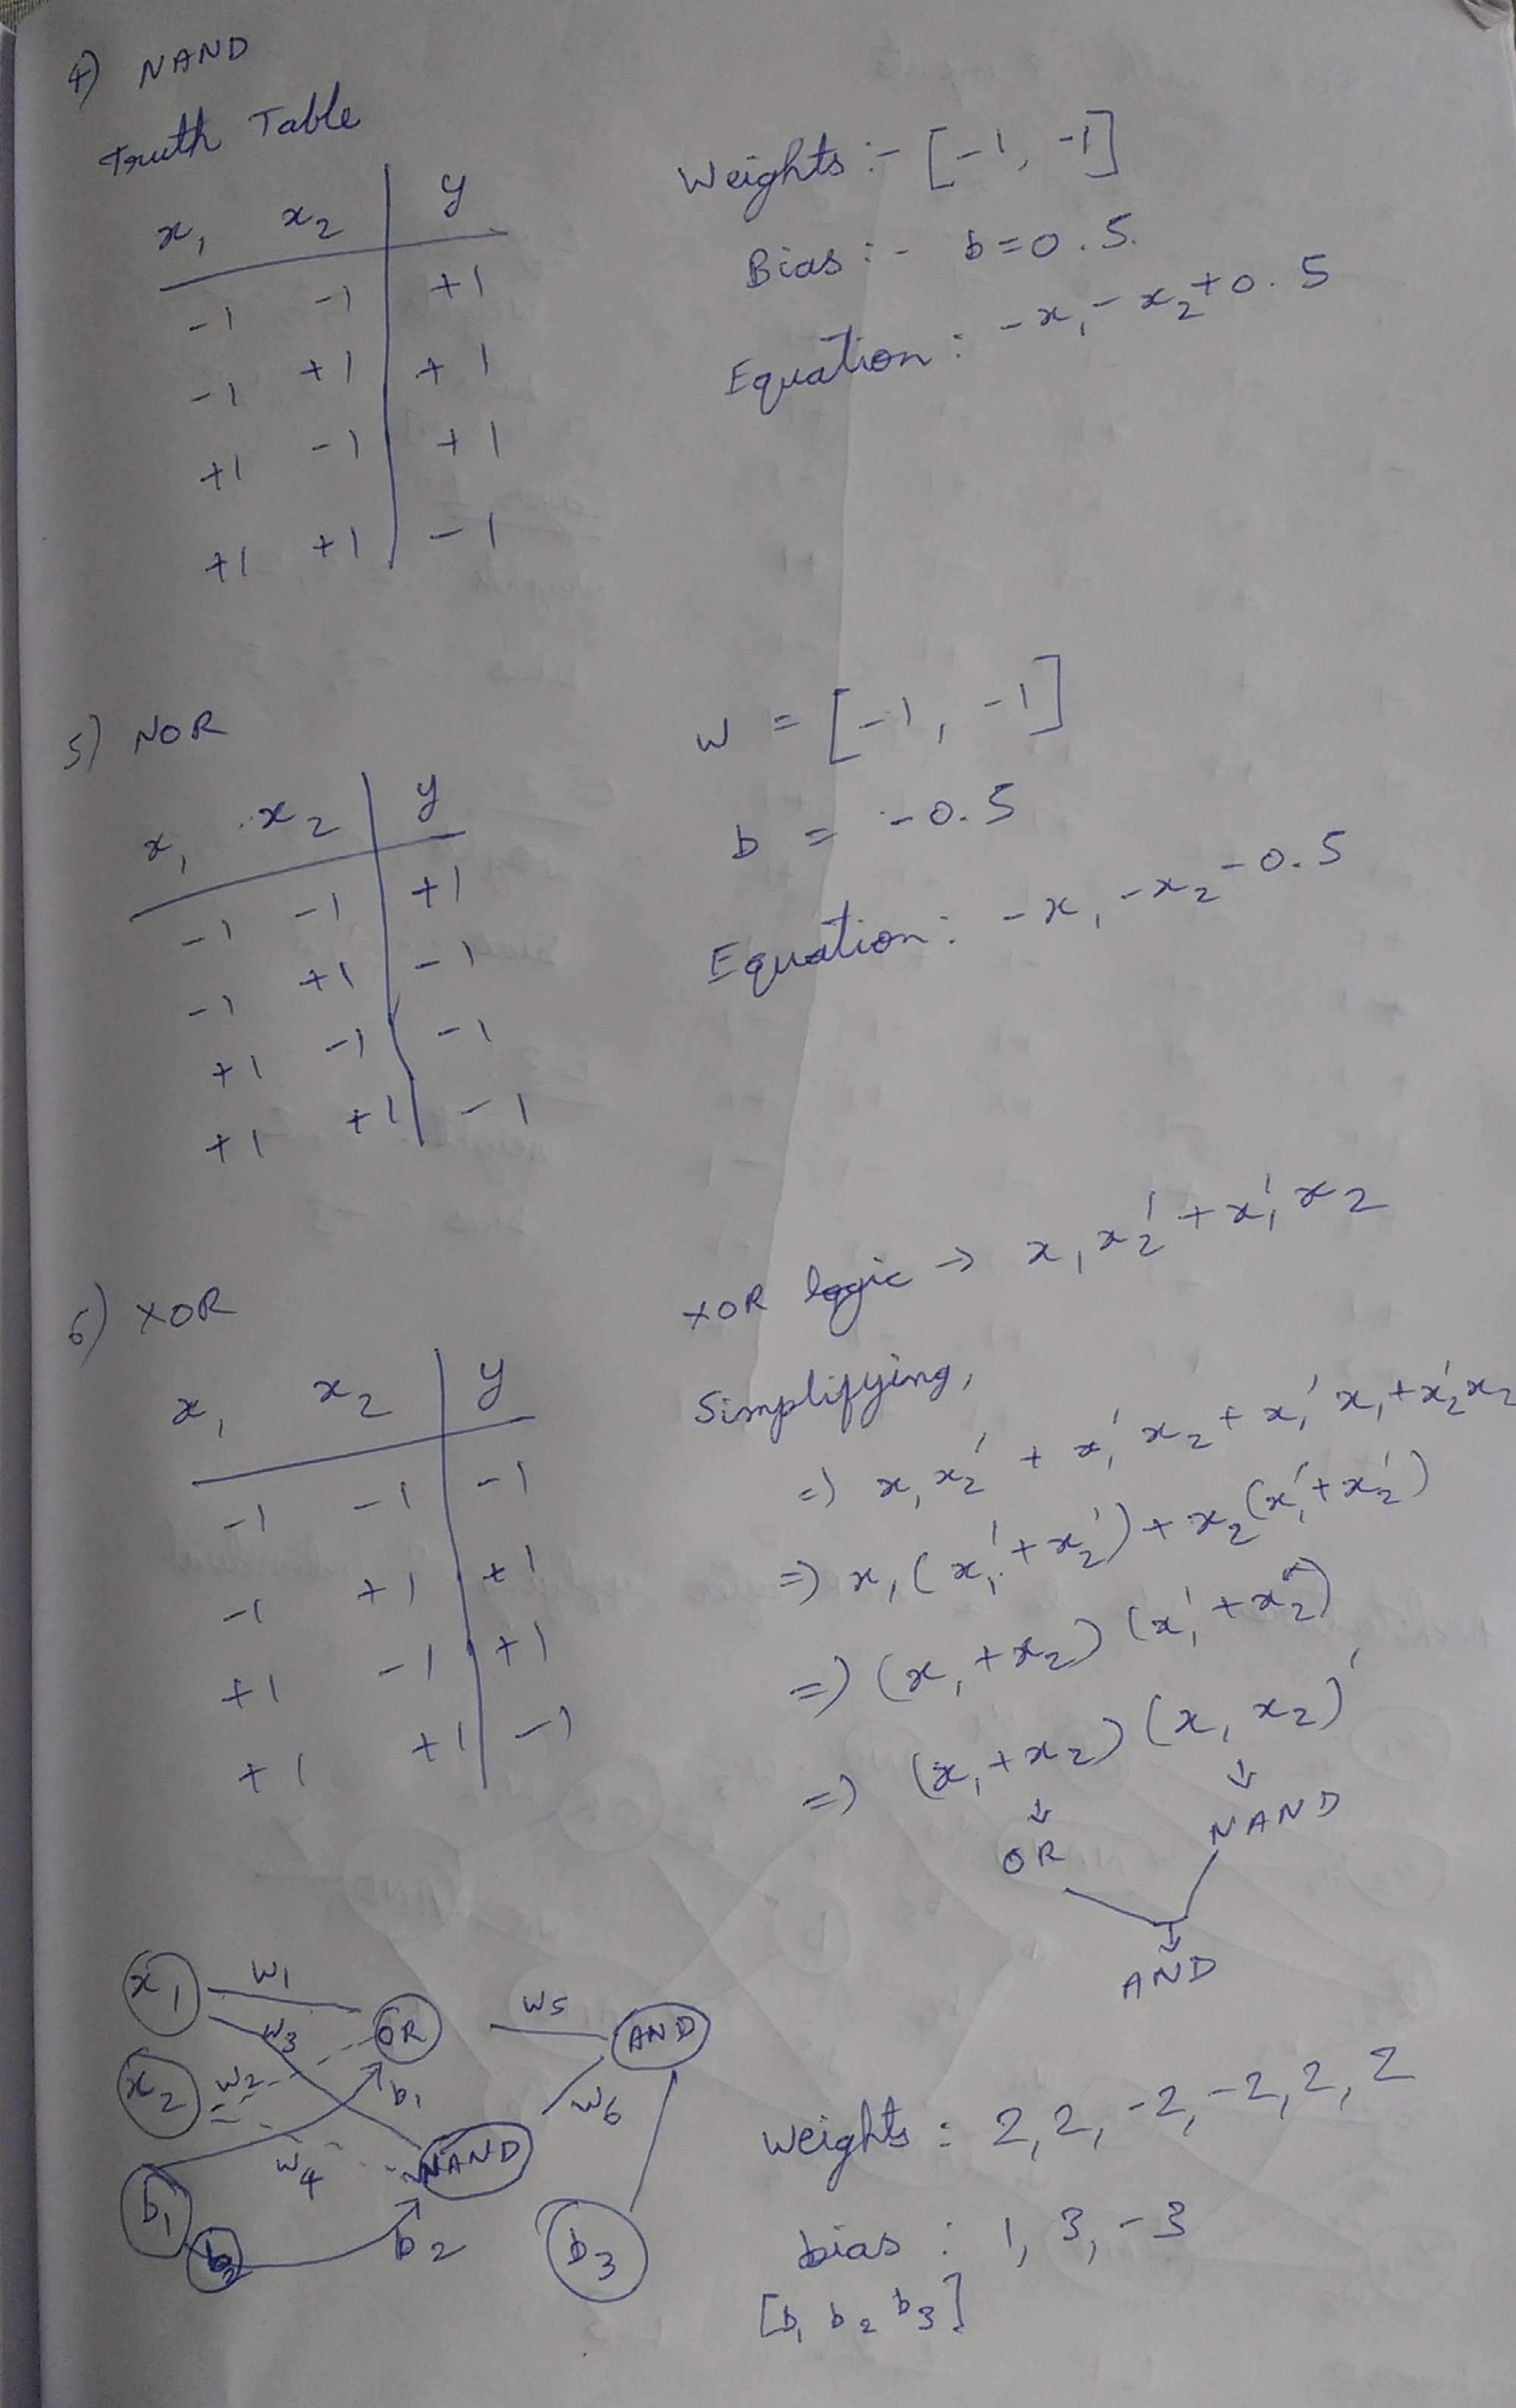 4) NAND
Truth Table
x₁ x₂ y
-1 -1 +1
-1 +1 +1
+1 -1 +1
+1 +1 -1
Weights :- [-1, -1]
Bias :- b=0.5.
Equation : -x₁-x₂+0.5
5) NOR
x₁ x₂ y
-1 -1 +1
-1 +1 -1
+1 -1 -1
+1 +1 -1
w = [-1, -1]
b = -0.5
Equation : -x₁-x₂-0.5
6) XOR
x₁ x₂ y
-1 -1 -1
-1 +1 +1
+1 -1 +1
+1 +1 -1
XOR logic → x₁x₂' + x₁'x₂
Simplifying,
=) x₁x₂' + x₁'x₂ + x₁'x₁ + x₂'x₂
=) x₁(x₁'+x₂') + x₂(x₁'+x₂')
=) (x₁+x₂) (x₁'+x₂')
=) (x₁+x₂) (x₁ x₂)'
↓ ↓
OR NAND
AND
x₁ w₁ OR w₅ AND
w₃
x₂ w₂ b₁ w₆
w₄ NAND
b₁ b₂ b₂ b₃
Weights : 2,2,-2,-2,2,2
bias : 1, 3, -3
[b₁ b₂ b₃]